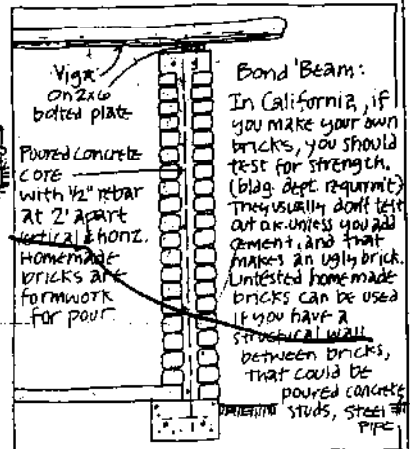 Viga
on 2x6
bolted plate
Poured Concrete
core
with 1/2" rebar
at 2' apart
vertical & horiz.
Homemade
bricks are
formwork
for pour
Bond Beam:
In California, if
you make your own
bricks, you should
test for strength.
(bldg. dept. requirmt)
They usually don't test
out o.k. unless you add
cement, and that
makes an ugly brick.
Untested homemade
bricks can be used
if you have a
structural wall
between bricks,
that could be
poured concrete
studs, steel
pipe